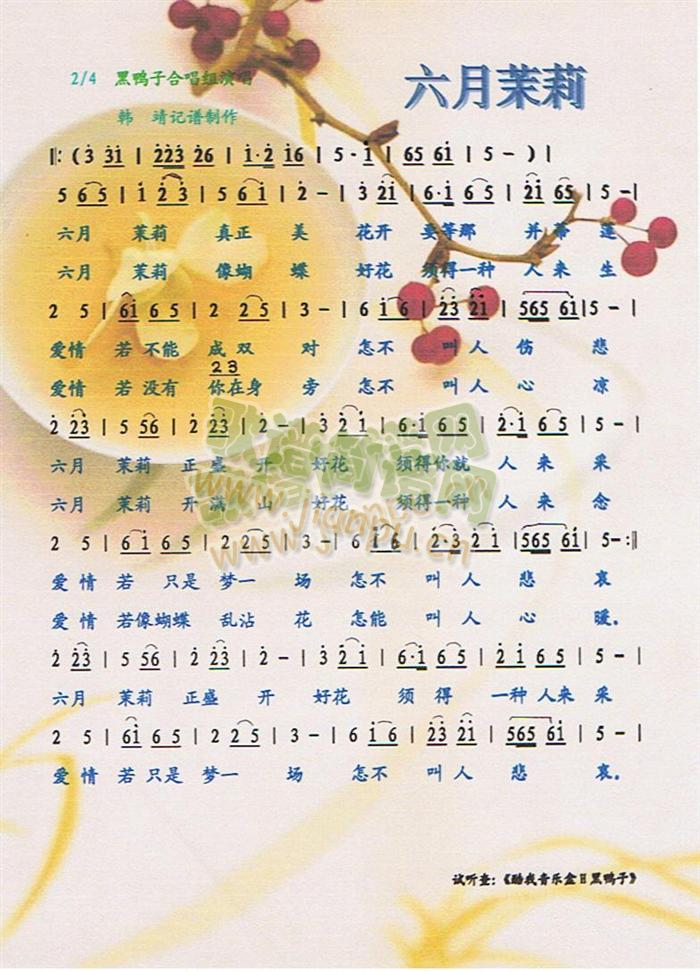 六月茉莉
2/4 黑鸭子合唱组演唱
韩 靖记谱制作
‖: (3 31 | 223 26 | 1·2 16 | 5·1 | 65 61 | 5 - )|
5 65 | 1 23 | 5 61 | 2 - | 3 21 | 6·1 65 | 21 65 | 5 -|
六月 茉莉 真正 美 花开 要等那 并蒂 莲
六月 茉莉 像蝴 蝶 好花 须得一种 人来 生
2 5 | 61 65 | 2 25 | 3 -| 6 16 | 23 21 | 565 61 | 5 -|
爱情 若不能 成双 对 怎不 叫人 伤 悲
23
爱情 若没有 你在身 旁 怎不 叫人 心 凉
2 23 | 5 56 | 2 23 | 2 - | 3 21 | 6·1 65 | 2165 | 5 -|
六月 茉莉 正盛 开 好花 须得你就 人来 采
六月 茉莉 开满 山 好花 须得一种 人来 念
2 5 | 61 65 | 2 25 | 3 - | 6 16 | 2·3 21 | 565 61 | 5 -:‖
爱情 若 只是 梦一 场 怎不 叫人 悲 哀
爱情 若像蝴蝶 乱沾 花 怎能 叫人 心 暖。
2 23 | 5 56 | 2 23 | 2 - | 3 21 | 6·1 65 | 2165 | 5 -|
六月 茉莉 正盛 开 好花 须 得 一种 人来 采
2 5 | 61 65 | 2 25 | 3 -| 6 16 | 23 21 | 565 61 | 5 -|
爱情 若 只是 梦一 场 怎不 叫人 悲 哀。
试听查:《酷我音乐盒日黑鸭子》